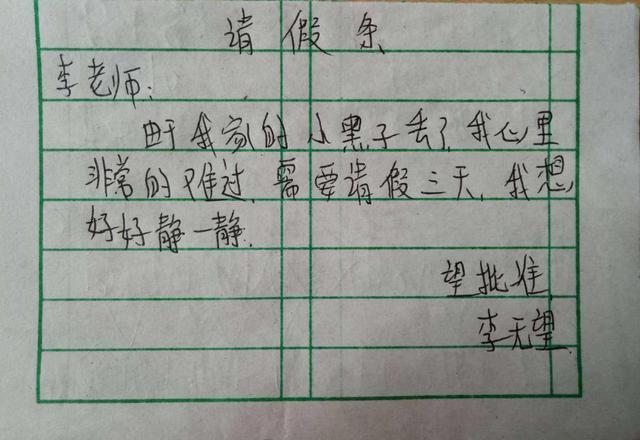 请假条
李老师:
由于我家的小黑子丢了,我心里
非常的难过,需要请假三天,我想
好好静一静.
望批准
李无望